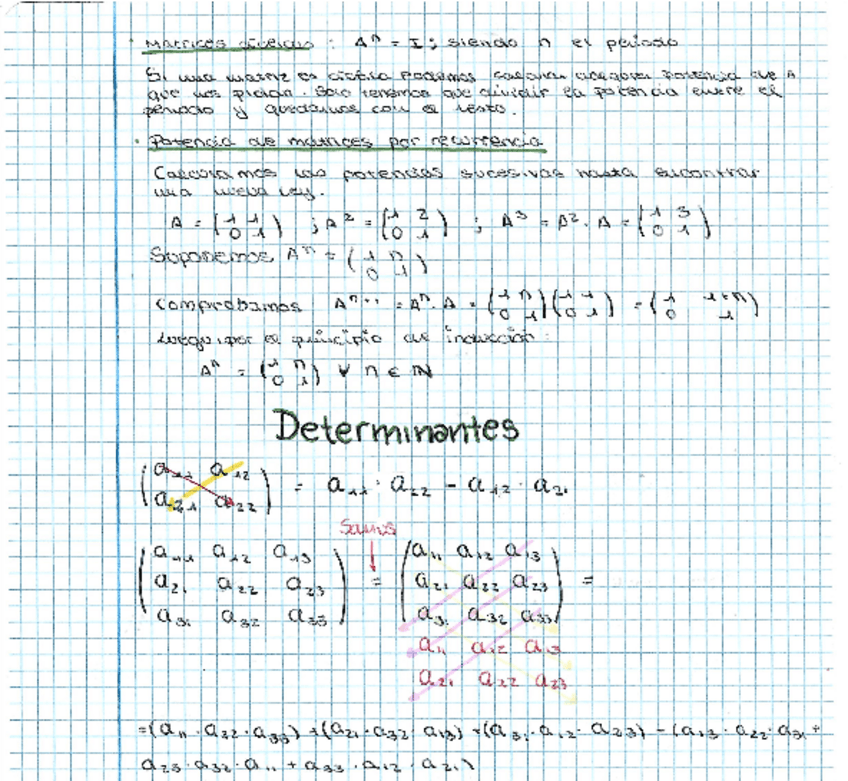 · Matrices cíclicas : Aⁿ = I ; siendo n el periodo
Si una matriz es cíclica podemos calcular cualquier potencia de A
que nos pidan. Solo tenemos que dividir la potencia entre el
periodo y quedarnos con el resto.
· Potencia de matrices por recurrencia
Calculamos las potencias sucesivas hasta encontrar
una nueva ley.
A = (1 1 / 0 1) ; A² = (1 2 / 0 1) ; A³ = A² · A = (1 3 / 0 1)
Suponemos Aⁿ = (1 n / 0 1)
Comprobamos Aⁿ⁺¹ = Aⁿ · A = (1 n / 0 1)(1 1 / 0 1) = (1 1+n / 0 1)
Luego por el principio de inducción:
Aⁿ = (1 n / 0 1) ∀ n ∈ ℕ
Determinantes
(a₁₁ a₁₂ / a₂₁ a₂₂) = a₁₁ · a₂₂ - a₁₂ · a₂₁
Sarrus
(a₁₁ a₁₂ a₁₃ / a₂₁ a₂₂ a₂₃ / a₃₁ a₃₂ a₃₃) = (a₁₁ a₁₂ a₁₃ / a₂₁ a₂₂ a₂₃ / a₃₁ a₃₂ a₃₃) =
a₁₁ a₁₂ a₁₃
a₂₁ a₂₂ a₂₃
=(a₁₁ · a₂₂ · a₃₃) + (a₂₁ · a₃₂ · a₁₃) + (a₃₁ · a₁₂ · a₂₃) - (a₁₃ · a₂₂ · a₃₁ +
a₂₃ · a₃₂ · a₁₁ + a₃₃ · a₁₂ · a₂₁)